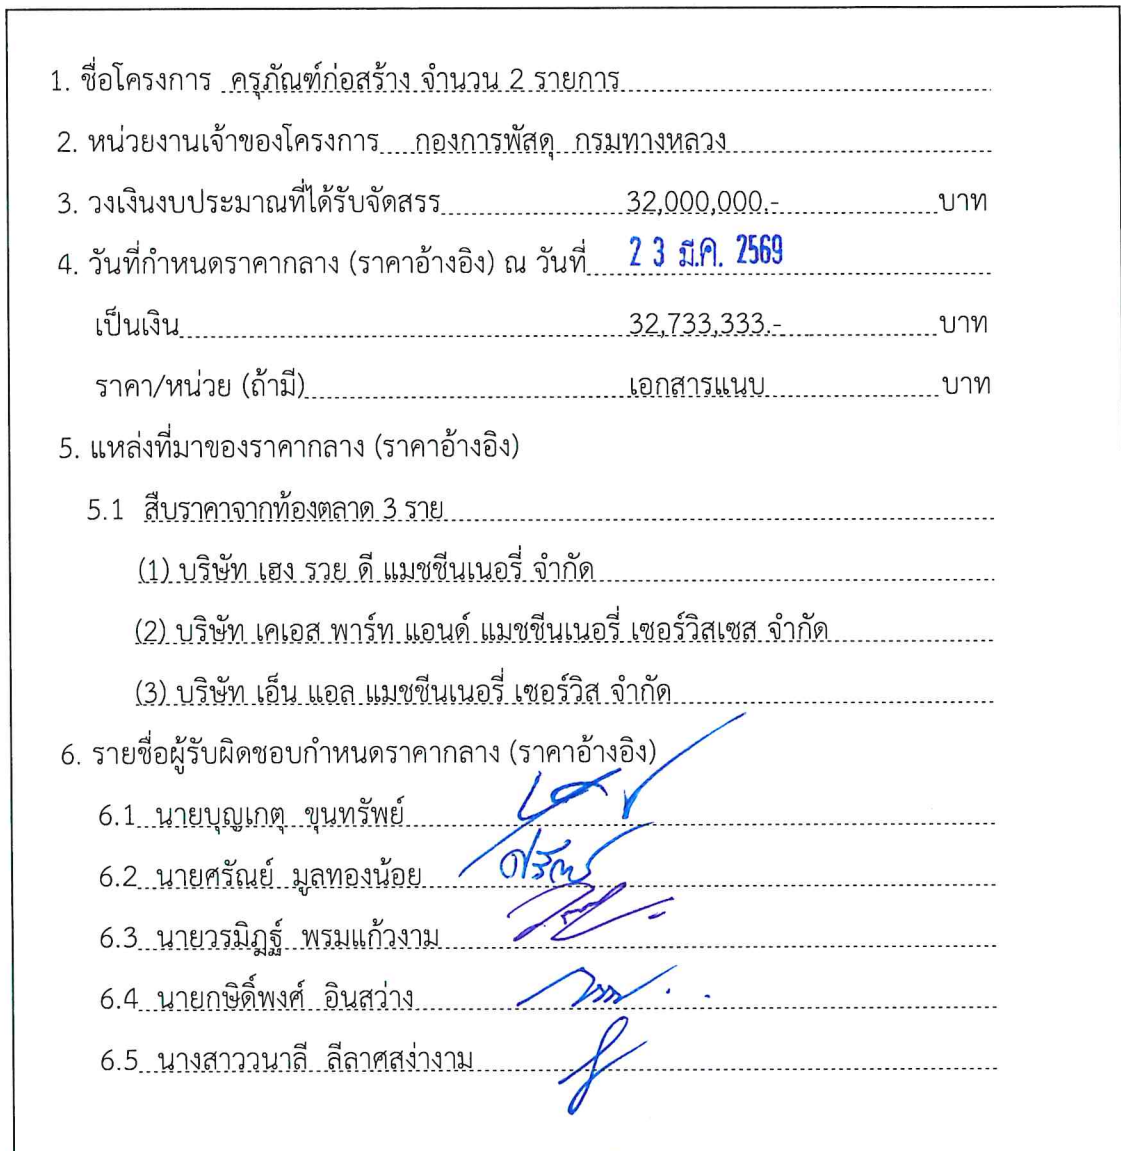 1. ชื่อโครงการ ครุภัณฑ์ก่อสร้าง จำนวน 2 รายการ
2. หน่วยงานเจ้าของโครงการ กองการพัสดุ กรมทางหลวง
3. วงเงินงบประมาณที่ได้รับจัดสรร 32,000,000.- บาท
4. วันที่กำหนดราคากลาง (ราคาอ้างอิง) ณ วันที่ 23 มี.ค. 2569
เป็นเงิน 32,733,333.- บาท
ราคา/หน่วย (ถ้ามี) เอกสารแนบ บาท
5. แหล่งที่มาของราคากลาง (ราคาอ้างอิง)
5.1 สืบราคาจากท้องตลาด 3 ราย
(1) บริษัท เฮง รวย ดี แมชชีนเนอรี่ จำกัด
(2) บริษัท เคเอส พาร์ท แอนด์ แมชชีนเนอรี่ เซอร์วิสเซส จำกัด
(3) บริษัท เอ็น แอล แมชชีนเนอรี่ เซอร์วิส จำกัด
6. รายชื่อผู้รับผิดชอบกำหนดราคากลาง (ราคาอ้างอิง)
6.1 นายบุญเกตุ ขุนทรัพย์
6.2 นายศรัณย์ มูลทองน้อย
6.3 นายวรมิฎฐ์ พรมแก้วงาม
6.4 นายกษิดิ์พงศ์ อินสว่าง
6.5 นางสาววนาลี ลีลาศสง่างาม